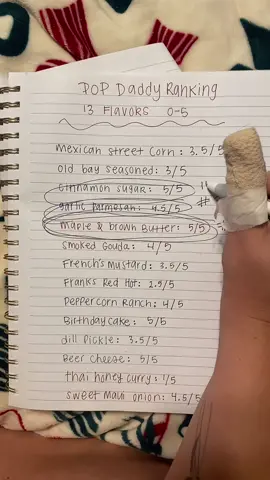 POP Daddy Ranking
13 FLAVORS 0-5
mexican street corn: 3.5/5
old bay seasoned: 3/5
cinnamon sugar: 5/5
garlic parmesan: 4.5/5
maple & brown butter: 5/5
smoked Gouda: 4/5
French's mustard: 3.5/5
Franks Red Hot: 2.5/5
Peppercorn Ranch: 4/5
Birthday cake: 5/5
dill Pickle: 3.5/5
Beer cheese: 5/5
thai honey curry: 1/5
sweet Maui onion: 4.5/5